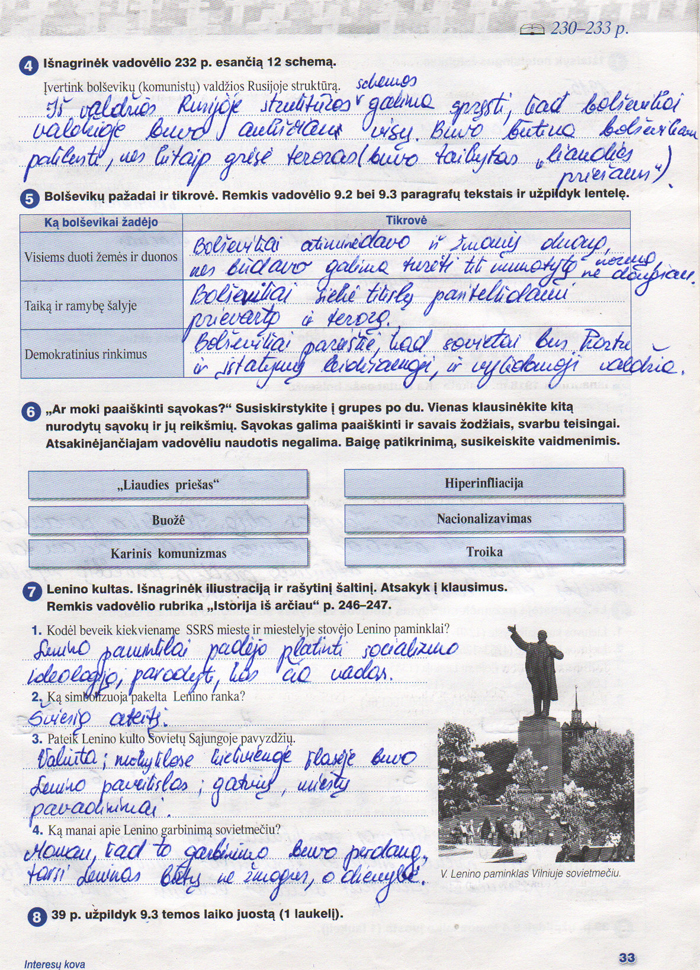 230–233 p.
4 Išnagrinėk vadovėlio 232 p. esančią 12 schemą.
Įvertink bolševikų (komunistų) valdžios Rusijoje struktūrą. schemos
Iš valdžios Rusijoje struktūros galima spręsti, kad bolševikai
valdžioje buvo aukščiau visų. Buvo būtina bolševikam
paklusti, nes kitaip grėsė teroras (buvo taikytas „liaudies
priešams“).
5 Bolševikų pažadai ir tikrovė. Remkis vadovėlio 9.2 bei 9.3 paragrafų tekstais ir užpildyk lentelę.
Ką bolševikai žadėjo
Tikrovė
Visiems duoti žemės ir duonos
Bolševikai atiminėdavo iš žmonių duoną,
nes būdavo galima turėti tik numatytą normą
ne daugiau.
Taiką ir ramybę šalyje
Bolševikai siekė tikslų pasitelkdami
prievartą ir terorą.
Demokratinius rinkimus
Bolševikai pareiškė, kad sovietai bus
ir įstatymų leidžiamoji, ir vykdomoji valdžia.
6 „Ar moki paaiškinti sąvokas?“ Susiskirstykite į grupes po du. Vienas klausinėkite kitą
nurodytų sąvokų ir jų reikšmių. Sąvokas galima paaiškinti ir savais žodžiais, svarbu teisingai.
Atsakinėjančiajam vadovėliu naudotis negalima. Baigę patikrinimą, susikeiskite vaidmenimis.
„Liaudies priešas“
Hiperinfliacija
Buožė
Nacionalizavimas
Karinis komunizmas
Troika
7 Lenino kultas. Išnagrinėk iliustraciją ir rašytinį šaltinį. Atsakyk į klausimus.
Remkis vadovėlio rubrika „Istorija iš arčiau“ p. 246–247.
1. Kodėl beveik kiekviename SSRS mieste ir miestelyje stovėjo Lenino paminklai?
Lenino paminklai padėjo platinti socializmo
ideologiją, parodyti, kas čia vadas.
2. Ką simbolizuoja pakelta Lenino ranka?
Šviesią ateitį.
3. Pateik Lenino kulto Sovietų Sąjungoje pavyzdžių.
Valiuta; mokyklose kiekvienoje klasėje buvo
Lenino paveikslas; gatvių, miestų
pavadinimai.
4. Ką manai apie Lenino garbinimą sovietmečiu?
Manau, kad to garbinimo buvo perdaug,
tarsi Leninas būtų ne žmogus, o dievybė.
V. Lenino paminklas Vilniuje sovietmečiu.
8 39 p. užpildyk 9.3 temos laiko juostą (1 laukelį).
Interesų kova
33